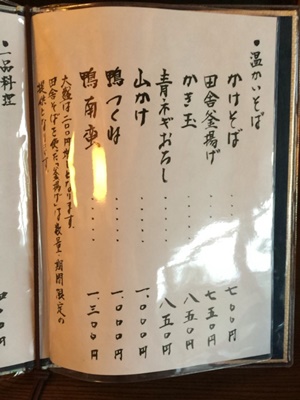 ●温かいそば
かけそば・・・・・七〇〇円
田舎釜揚げ・・・・七五〇円
かき玉・・・・・八五〇円
青ネギおろし・・・・八五〇円
山かけ・・・・・一、〇〇〇円
鴨つくね・・・・一、〇〇〇円
鴨南蛮・・・・・一、三〇〇円
大盛は二〇〇円増しとなります。
田舎そばを使った釜揚げは数量・期間限定の
提供となります。
●一品料理